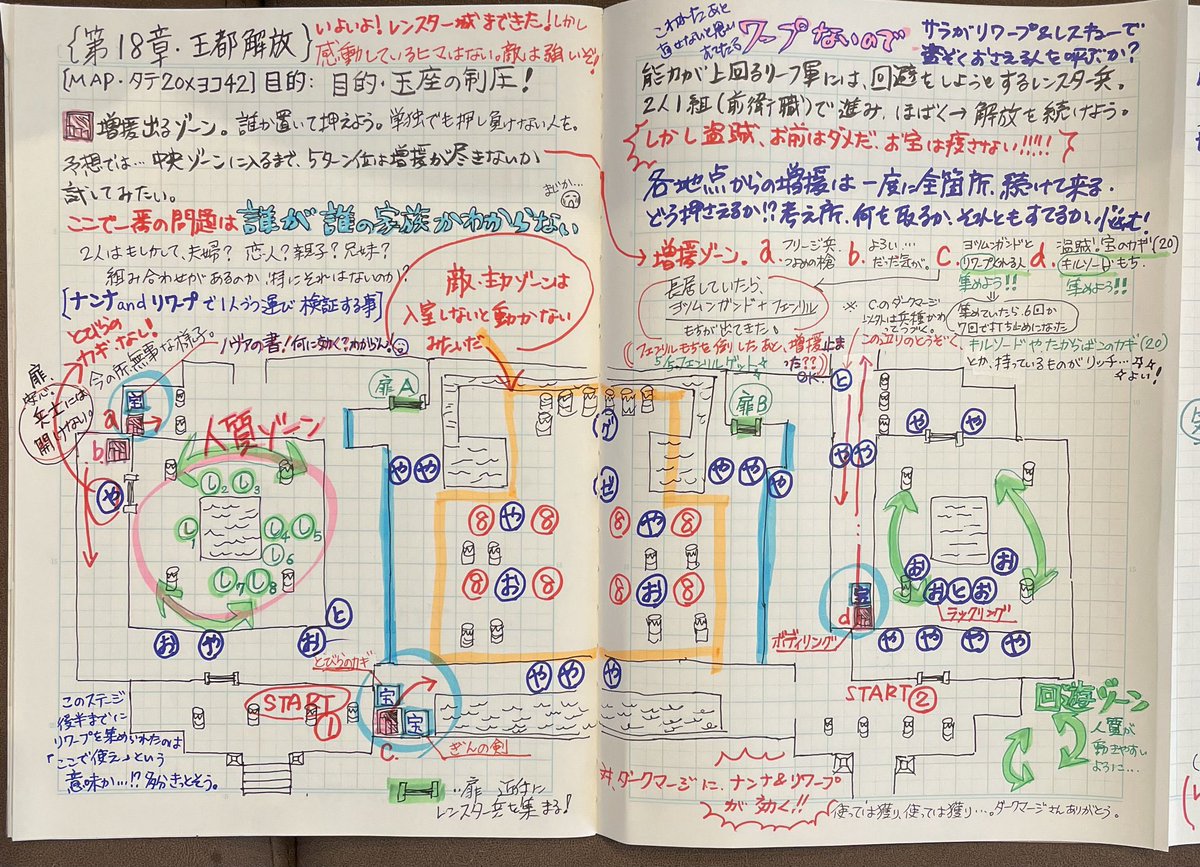 {第18章・王都解放}
いよいよ！レンスター城まできた！しかし
感動しているヒマはない。敵は強いぞ！
[MAP・タテ20×ヨコ42] 目的: 目的・玉座の制圧！
増援出るゾーン。誰か置いて押えよう。単独でも押し負けない人を。
予想では…中央ゾーンに入るまで、5ターン位は増援が尽きないか
試してみたい。
まじか…
ここで一番の問題は誰が誰の家族かわからない
2人はもしかして、夫婦？恋人？親子？兄妹？
組み合わせがあるのか、特にそれはないのか？
[ナンナandリワープで1人づつ運び検証する事]
敵・主力ゾーンは
入室しないと動かない
みたいだ
とびらの
カギなし！
今の所、無事な様子。
ノヴァの書！何に効く？わからん！
扉、
安心。
兵士には
開けない。
宝
a
b
や
人質ゾーン
し2 し3
し1
し4 し5
し6
し7 し8
と
お や お
扉A
や や
8 や 8
8 お 8
とびらのカギ
START
①
宝
宝
C.
ぎんの剣
や や や
このステージ
後半までに
リワープを集めいれたのは
「ここで使え」という
意味か…!?多分きっとそう。
…扉 近辺に
レンスター兵を集まる！
これわかったあと
ワープないので
サラがリワープ&レスキューで
盗ぞくおさえる人を呼ぶか？
能力が上回るリーフ軍には、回避をしようとするレンスター兵。
2人1組(前衛職)で進み、ほばく→解放を続けよう。
しかし盗賊、お前はダメだ、お宝は渡さない!!!!!
各地点からの増援は一度に全箇所、続けて来る。
どう押さえるか!?考え所、何を取るか、それともすてるか、悩む！
増援ゾーン。
a.
フリージ兵
つよめの槍
b.
よろい…
だった気が。
C.
ヨツムンガンドと
リワープとれる人
集めよう!!
d.
盗賊！宝のカギ(20)
キルソードもち、
集めよう!!
長居していたら、
ヨツムンガンド+フェンリル
もちが出てきた。
(フェンリルもちを倒したあと、増援止まった??)
5/5フェンリルゲット☆
OK.
※Cのダークマージ
以外は兵種かわ
ってつづく。
集めていたら、6回か
7回で打ち止めになった
この辺りのとうぞく、キルソードやたからばこのカギ(20)
とか、持っているものがリッチ…☆
よい！
扉B
や や
や
グ
だ
8 や 8
8 お 8
と
や や
や や
お お
お と お
ラックリング
宝
d
ボディリング
や や や や
START②
回遊ゾーン
人質が
動きやすい
ように…
対、ダークマージに、ナンナ&リワープ
が効く!!
使っては獲り、使っては獲り…。ダークマージさんありがとう。